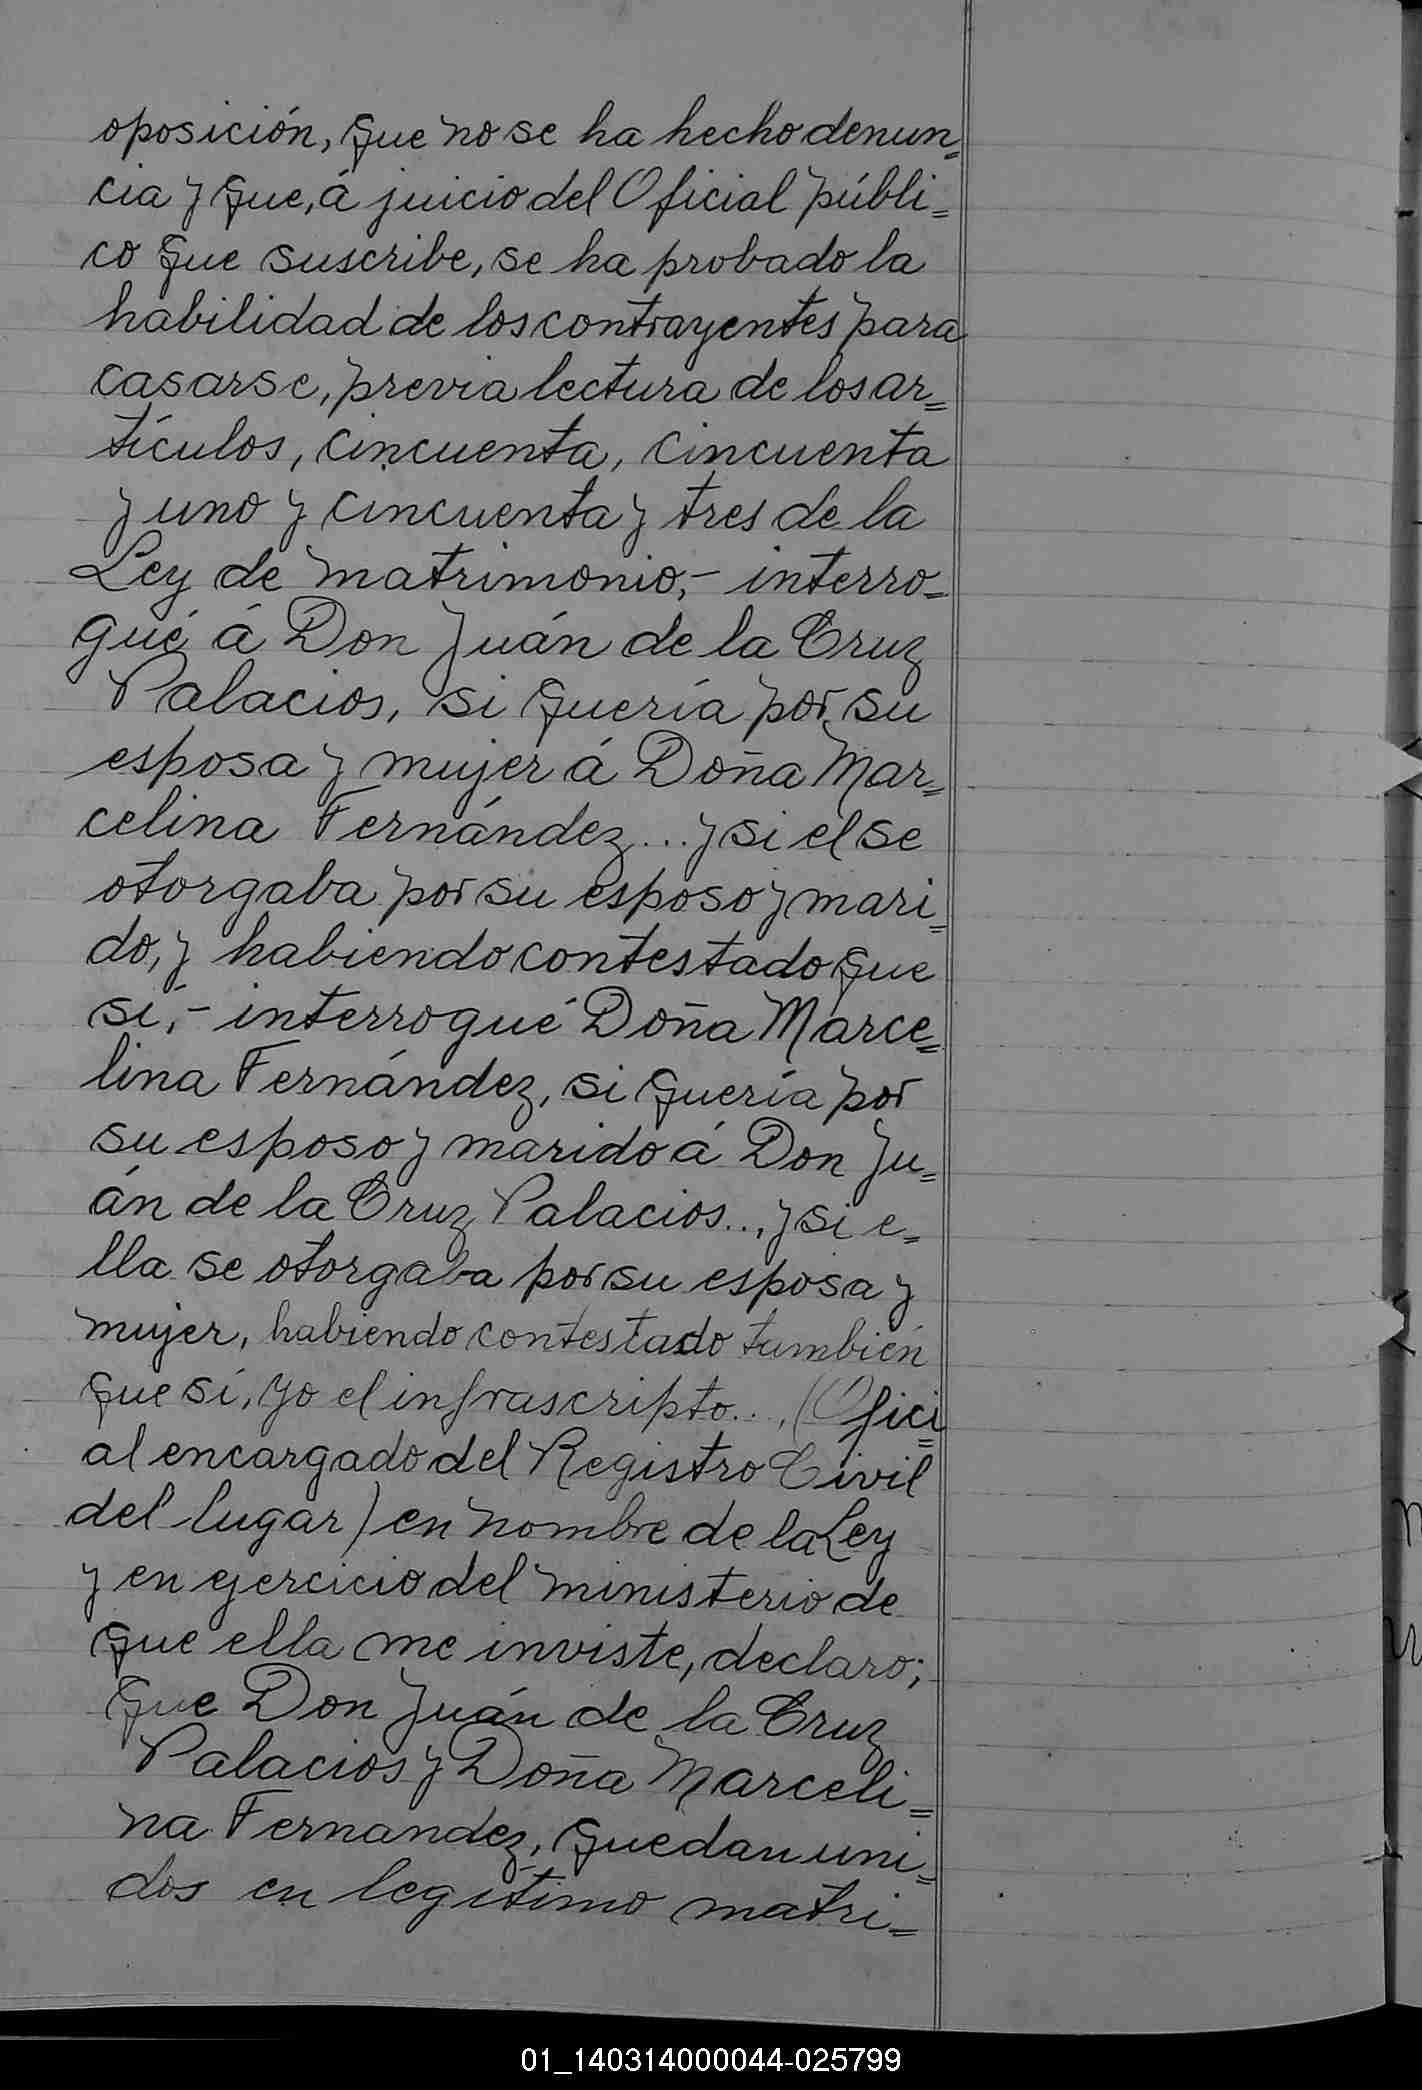 oposición, que no se ha hecho denun=
cia y que, á juicio del Oficial públi=
co que suscribe, se ha probado la
habilidad de los contrayentes para
casarse, previa lectura de los ar=
tículos, cincuenta, cincuenta
y uno y cincuenta y tres de la
Ley de matrimonio,- interro=
gué á Don Juán de la Cruz
Palacios, si quería por su
esposa y mujer á Doña Mar=
celina Fernández... y si el se
otorgaba por su esposo y mari=
do, y habiendo contestado que
sí,- interrogué Doña Marce=
lina Fernández, si quería por
su esposo y marido á Don Ju=
án de la Cruz Palacios.., y si e=
lla se otorgaba por su esposa y
mujer, habiendo contestado también
que sí, yo el infrascripto.., (Ofici=
al encargado del Registro Civil
del lugar) en nombre de la Ley
y en ejercicio del ministerio de
que ella me inviste, declaro;
que Don Juán de la Cruz
Palacios y Doña Marceli=
na Fernandez, quedan uni=
dos en legítimo matri=
01_140314000044-025799